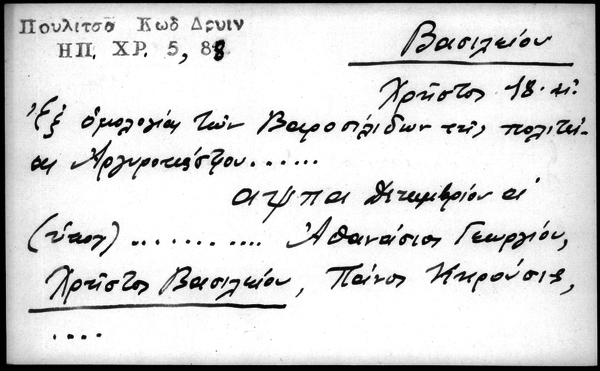 Πουλιτσα Κωδ Δρυιν
ΗΠ. ΧΡ. 5, 88
Βασιλείου
Χρῆστος 18. αἰ.
Ἐξ ὁμολογίας τῶν Βαροσλίδων τῆς πολιτεί-
ας Ἀργυροκάστρου......
αψπα Δεκεμβρίου α΄
(τόπος) ........... Ἀθανάσιος Γεωργίου,
Χρῆστος Βασιλείου, Πάνος
....